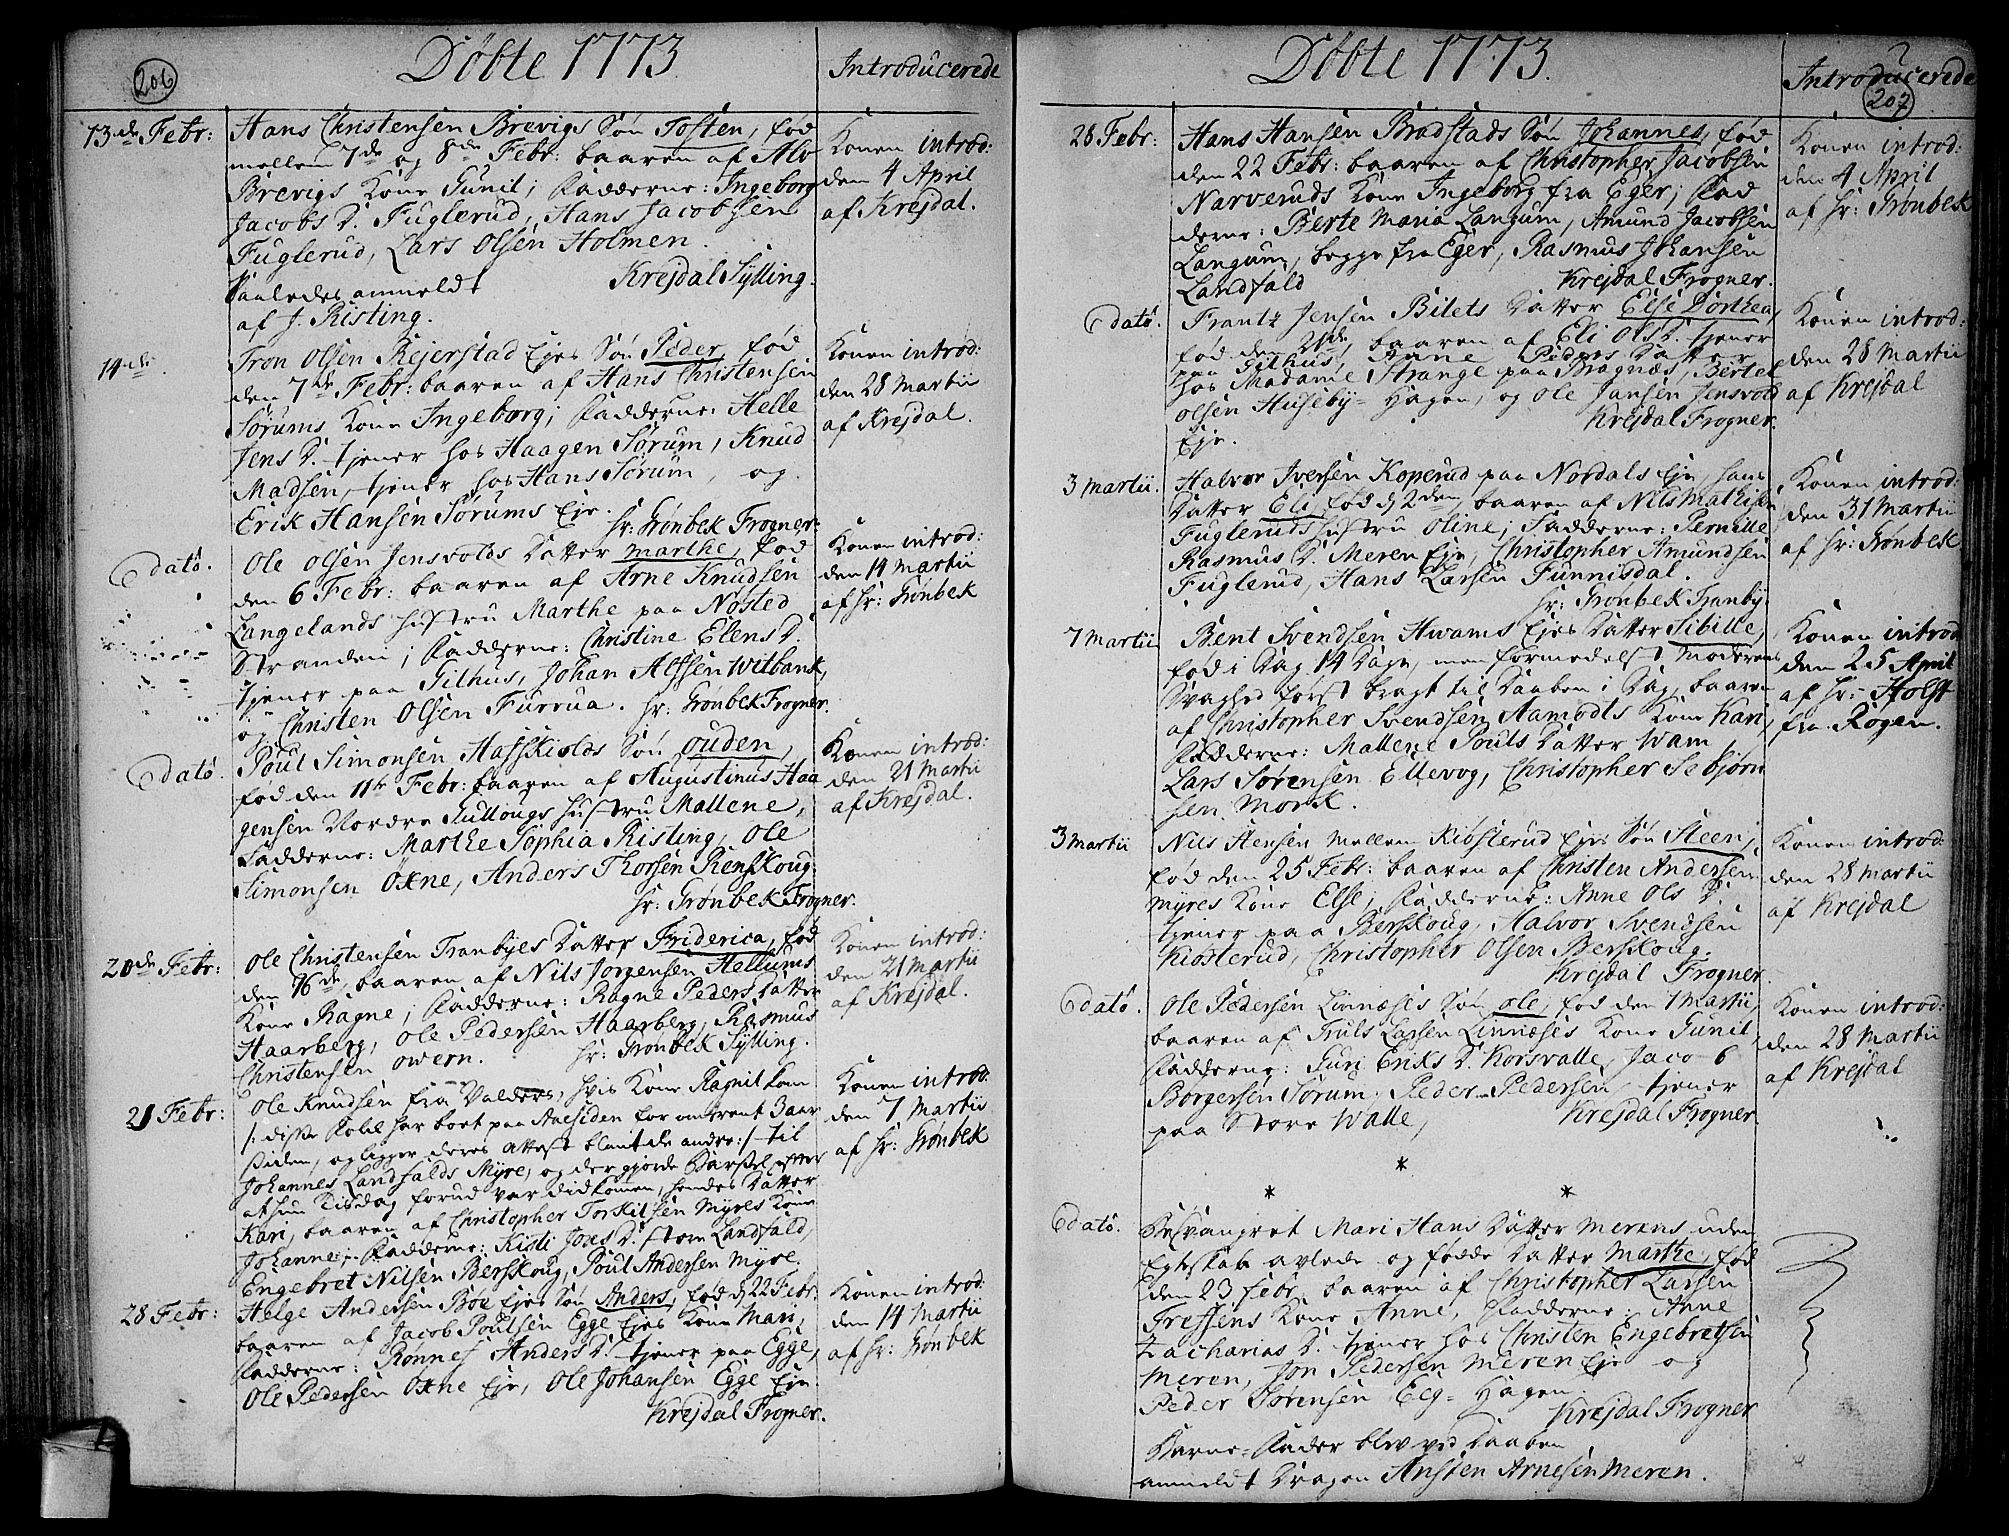 206
Døbte 1773
Introducerede
13de Febr:
Hans Christensen Brevigs Søn Tosten, fød
mellem 7de og 8de Febr: baaren af Alv
Brevigs Kone Gunil; Fadderne: Ingeborg
Jacobs D. Fuglerud, Hans Jacobsen
Fuglerud, Lars Olsen Holmen.
Saaledes anmeldt
Krejdal Sylling.
af J. Risting.
Konen introd:
den 4 April
af Krejdal.
14de
Tron Olsen Rejerstad Ejes Søn Peder, fød
den 7de Febr: baaren af Hans Christensen
Sørums Kone Ingeborg; Fadderne: Helle
Jens D. tjener hos Haagen Sørum, Knud
Madsen, tjener hos Hans Sørum, og
Erik Hansen Sørums Eje.
Hr: Grønbek Frogner:
Konen introd:
den 28 Martii
af Krejdal.
Edato.
Ole Olsen Jensvolds Datter Marthe, fød
den 6 Febr: baaren af Arne Knudsen
Langelands Hustru Marthe paa Nøsted
Stranden; Fadderne: Christine Elens D.
tjener paa Gilhus, Johan Alfsen Witbank,
og Christen Olsen Furrua. Hr: Grønbek Frogner.
Konen introd:
den 14 Martii
af Hr: Grønbek
Edato.
Poul Simonsen Hafskiolds Søn Ouden,
fød den 11te Febr: baaren af Augustinus Haa
gensen Nordre Gullougs Hustru Mallene,
Fadderne: Marthe Sophia Risting, Ole
Simonsen Oxne, Anders Thorsen Renskoug.
Hr: Grønbek Frogner.
Konen introd:
den 21 Martii
af Krejdal.
20de Febr:
Ole Christensen Tranbyes Datter Friderica, fød
den 16de, baaren af Nils Jørgensen Hellums
Kone Ragne; Fadderne: Ragne Peders Datter
Haarberg, Ole Pedersen Haarberg, Rasmus
Christensen Owern. Hr: Grønbek Sylling.
Konen introd:
den 21 Martii
af Krejdal.
21 Febr:
Ole Knudsen fra Valders, hvis Kone Ragnil kom
/: disse Folk har boet paa Aaesiden for omtrent 3 aar
siden, og ligger deres Attest blant de andre :/ til
Johannes Landfalds Myre, og der gjorde Barsel efter
at hun Tisdag forud var didkommen, hendes Datter
Kari, baaren af Christopher Torkilsen Myres Kone
Johanne; Fadderne: Kisti Jons D. store Landfald,
Engebret Nilsen Berskoug, Poul Andersen Myre.
Konen introd:
den 7 Martii
af Hr: Grønbek
28 Febr:
Helge Andersen Bøe Ejes Søn Anders, fød d. 22 Febr:
baaren af Jacob Poulsen Egge Ejes Kone Mari,
Fadderne: Rønnef Anders D. tjener paa Egge,
Ole Pedersen Oxne Eje, Ole Johansen Egge Eje.
Krejdal Frogner.
Konen introd:
den 14 Martii
af Hr: Grønbek
Døbte 1773.
Introducerede
207
28 Febr:
Hans Hansen Bradstads Søn Johannes, fød
den 22 Febr: baaren af Christopher Jacobsen
Narveruds Kone Ingeborg fra Eger; Fad
derne: Berte Maria Langum, Amund Jacobsen
Langum, begge fra Eger, Rasmus Johansen
Landfald
Krejdal Frogner.
Konen introd:
den 4 April
af Hr: Grønbek
Edato.
Frantz Jensen Bilets Datter Else Dorthea,
fød den 21de, baaren af Eli Ols D. tjener
paa Gilhus, Anne Peders Datter
hos Madame Strange paa Bragnæs, Bertel
Olsen Huseby-Hagen, og Ole Jansen Jensvold
Eje.
Krejdal Frogner.
Konen introd:
den 28 Martii
af Krejdal
3 Martii.
Halvor Iversen Koperud paa Nordals Eje, hans
Datter Eli, fød d. 2den, baaren af Nils Mathisen
Fugleruds Hustru Oline; Fadderne: Pernille
Rasmus D. Meren Eje, Christopher Amundsen
Fuglerud, Hans Larsen Funnisdal.
Hr: Grønbek Tranby.
Konen introd:
den 31 Martii
af Hr: Grønbek
7 Martii
Bent Svendsen Hwams Ejes Datter Sibille,
fød i Dag 14 Dage, men formedelst Moderens
Svaghed først bragt til Daaben i Dag, baaren
af Christopher Svendsen Aamodts Kone Kari,
Fadderne: Mallene Pouls Datter Wam
Lars Sørensen Ellevog, Christopher Sebjørn
sen Mørk.
Konen introd
den 25 April
af Hr: Holst
fra Røgen.
3 Martii
Nils Stensen mellem Kiøsterud Ejes Søn Steen,
fød den 25 Febr: baaren af Christen Andersen
Myres Kone Else; Fadderne: Anne Ols D.
tjener paa Berskoug, Halvor Svendsen
Kiøsterud, Christopher Olsen Berskoug.
Krejdal Frogner.
Konen introd:
den 28 Martii
af Krejdal
Edato.
Ole Pedersen Linnæses Søn Ole, fød den 1 Martii,
baaren af Truls Larsen Linnæses Kone Gunil,
Fadderne: Guri Eriks D. Korsvalle, Jacob
Borgersen Sørum, Peder Pedersen, tjener
paa Store Walle,
Krejdal Frogner.
Konen introd:
den 28 Martii
af Krejdal
* * *
Edato.
Besvangret Mari Hans Datter Merens, uden
Egteskab avlede og fødde Datter Marthe, fød
den 23 Febr, baaren af Christopher Larsen
Treffens Kone Anne, Fadderne: Anne
Zacharias D. tjener hos Christen Engebretsen
Meren, Jon Pedersen Meren Eje og
Peder Sørensen Elg-Hagen.
Krejdal Frogner
Barne-Fader blev ved Daaben
anmeldt Dragon Ansten Arnesen Meren.